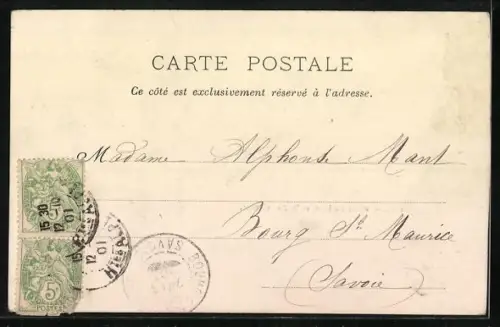 CARTE POSTALE
Ce côté est exclusivement réservé à l'adresse.
Madame Alphonse Mant
Bourg St Maurice
(Savoie)
15 30
12
01
12
01
5
POSTES
BOURG
SAV